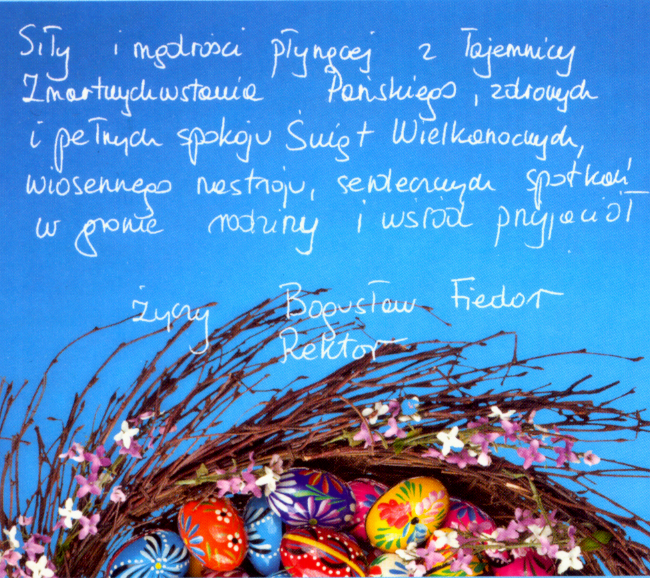 Siły i mądrości płynącej z Tajemnicy
Zmartwychwstania Pańskiego, zdrowych
i pełnych spokoju Świąt Wielkanocnych,
wiosennego nastroju, serdecznych spotkań
w gronie rodziny i wśród przyjaciół
życzy Bogusław Fiedor
Rektor